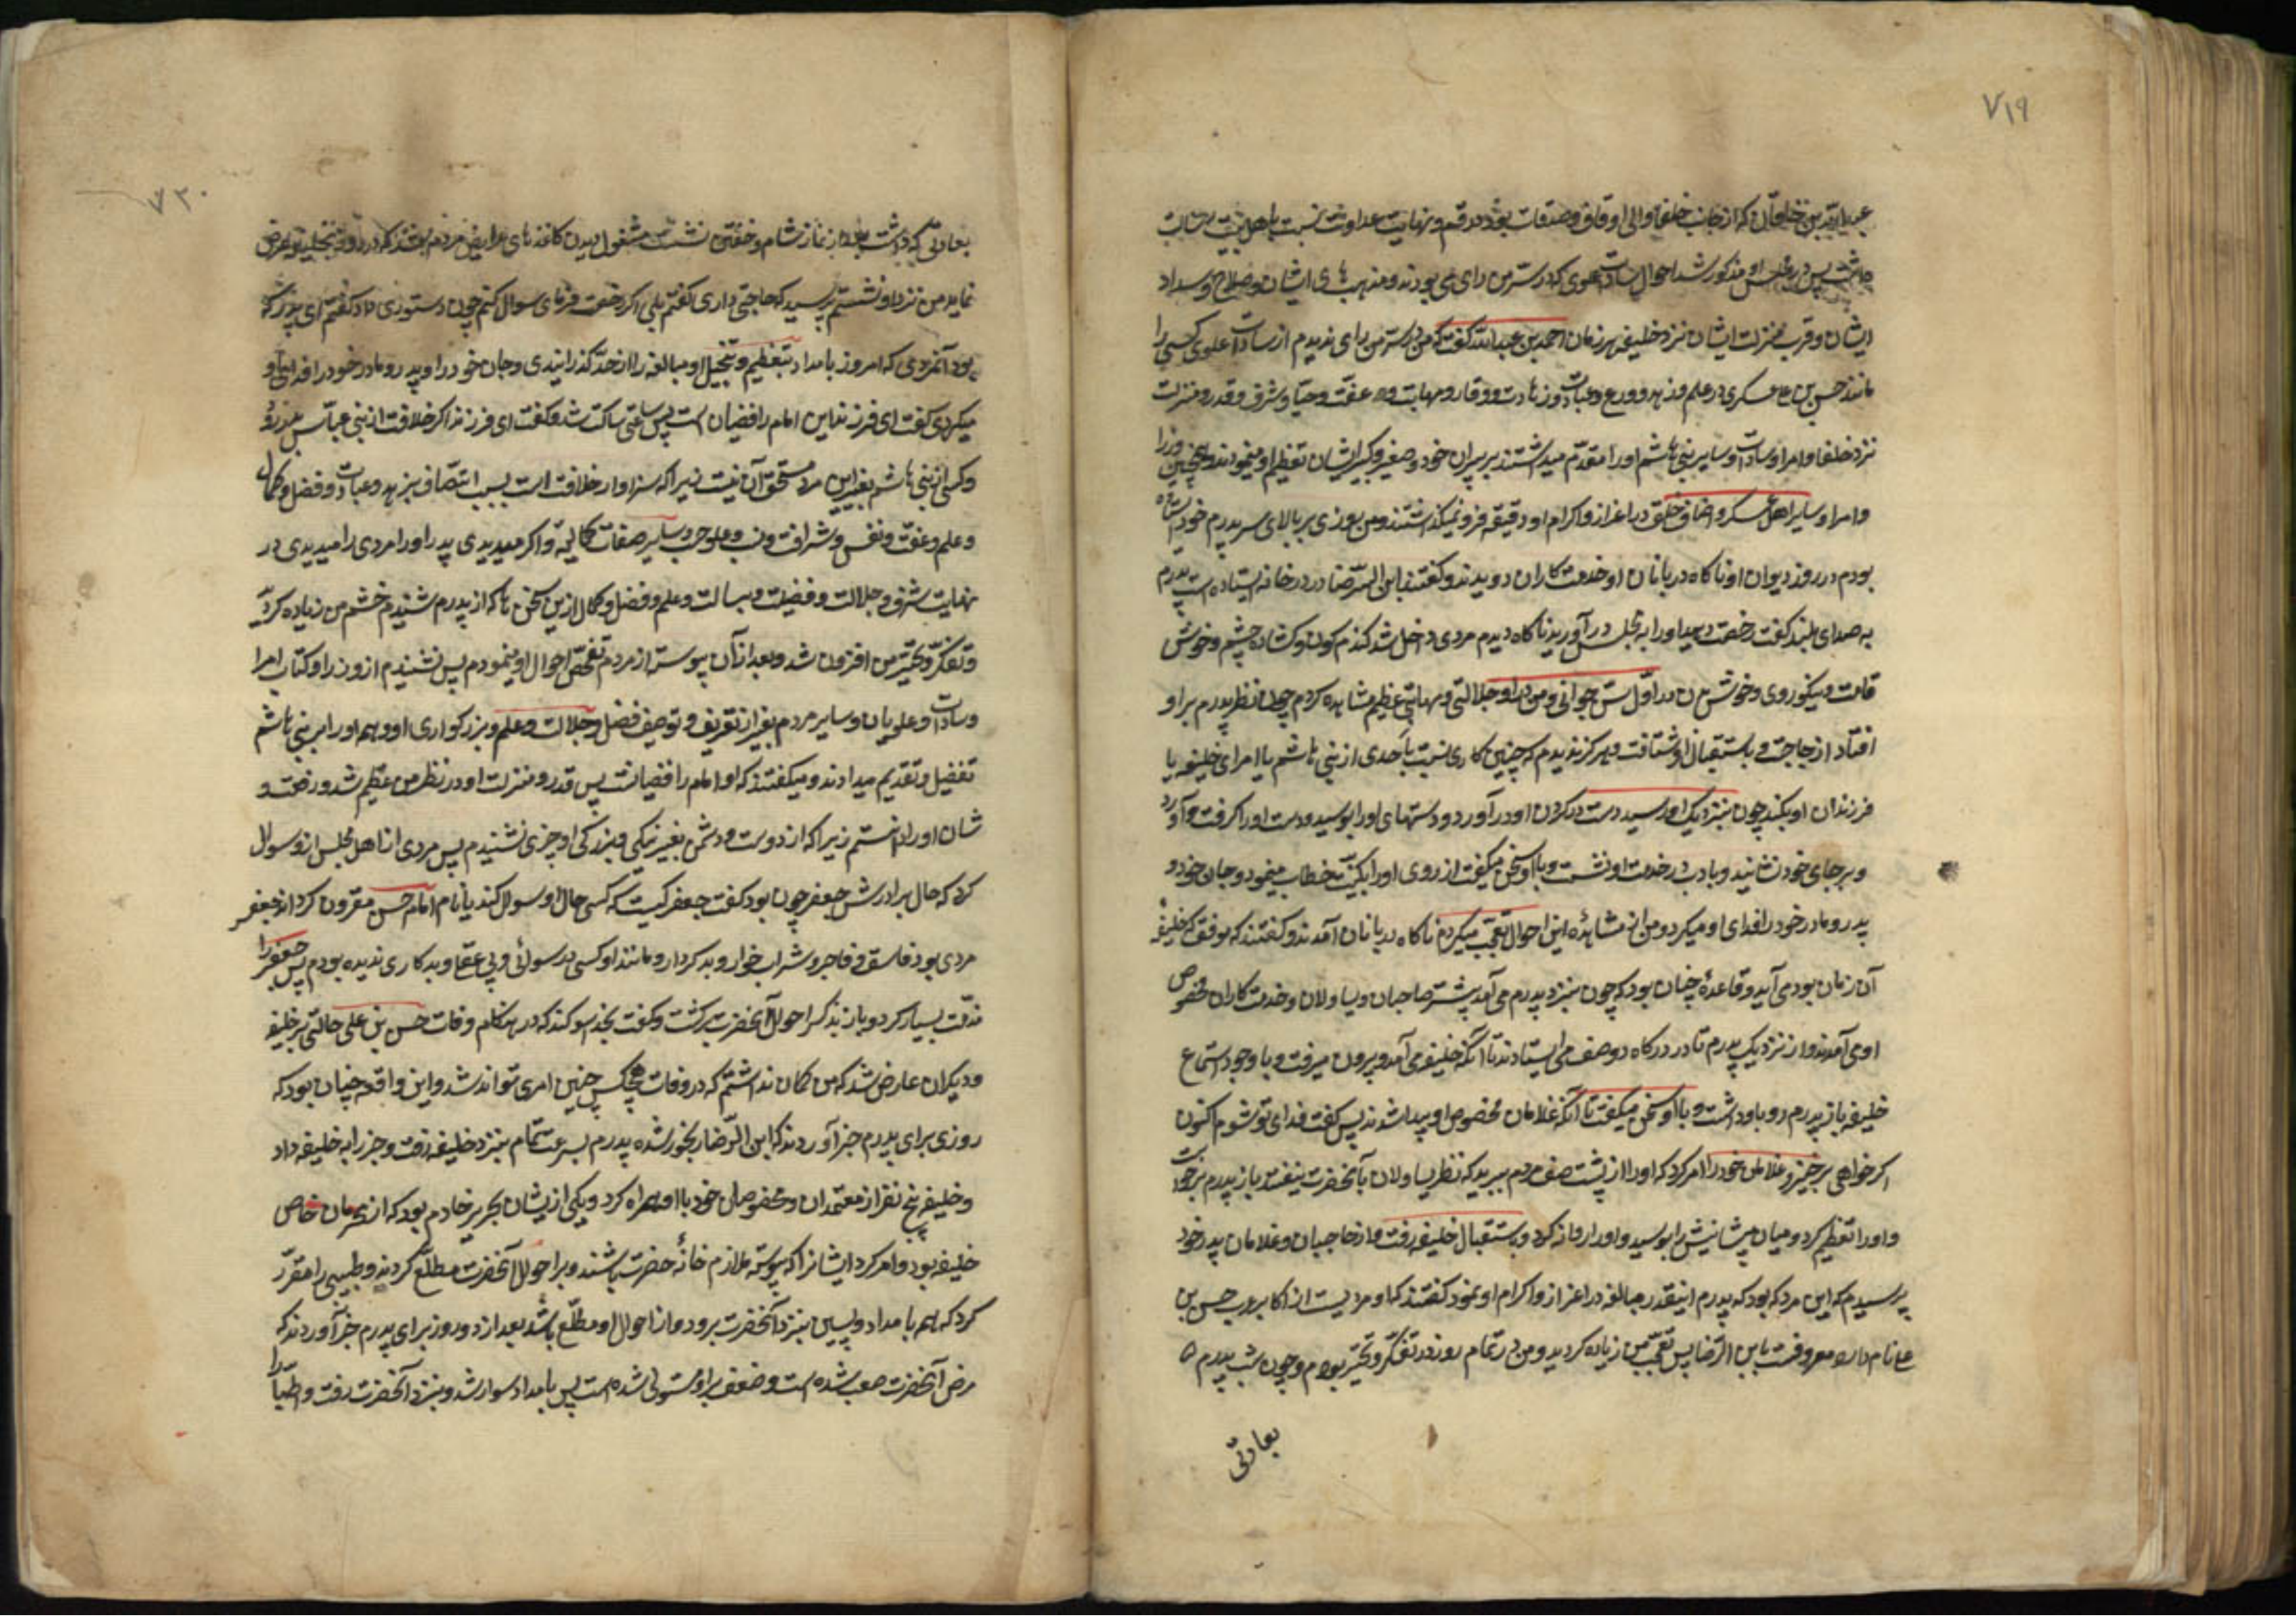 ٧١٩
عبیدالله بن خاقان که از جانب خلفا والی اوقاف و صدقات بود در قم و نهایت عداوت نسبت باهل بیت رسالت
داشت پس در مجلس او مذکور شد احوال سادات علوی که در سرمن رای می بودند و مذهب های ایشان و صلاح و سداد
ایشان و قرب منزلت ایشان نزد خلیفه هر زمان احمد بن عبیدالله گفت که من در سرمن رای ندیدم از سادات علوی کسی را
مانند حسن بن علی عسکری در علم و زهد و ورع و عبادت و زهادت و وقار و مهابت و عفت و حیا و شرف و قدر و منزلت
نزد خلفا و امرا و سادات و سایر بنی هاشم او را مقدم میداشتند بر پیران خود و صغیر و کبیر ایشان تعظیم او مینمودند و همچنین وزرا
و امرا و سایر اهل عسکر و اصناف خلق در اعزاز و اکرام او دقیقه فرو نمیگذاشتند و من روزی بر بالای سر پدرم خود ایستاده
بودم در روز دیوان او ناگاه دربانان او خدمت کاران دویدند و گفتند ابن الرضا در در خانه ایستاده است پدرم
به صدای بلند گفت رخصت دهید او را به مجلس درآورید ناگاه دیدم مردی داخل شد گندم گون و گشاده چشم و خوش
قامت و نیکو روی و خوش بدن در اول سن جوانی و من در او جلالتی و مهابتی عظیم مشاهده کردم چون نظر پدرم بر او
افتاد از جا جست و باستقبال او شتافت و هرگز ندیدم که چنین کاری نسبت باحدی از بنی هاشم یا امرای خلیفه یا
فرزندان او بکند چون بنزدیک او رسید دست در گردن او درآورد و دستهای او را بوسید و دست او را گرفت و آورد
و بر جای خود نشانید و با ادب در خدمت او نشست و با او سخن میگفت از روی او را بکنیت خطاب مینمود و جان خود و
پدر و مادر خود را فدای او میکرد و من از مشاهدۀ این احوال تعجب میکردم ناگاه دربانان آمدند و گفتند که موفق که خلیفه
آن زمان بود می آید و قاعده چنان بود که چون بنزد پدرم می آمد پیشتر حاجبان و یساولان و خدمت کاران مخصوص
او می آمدند و از نزدیک پدرم تا در درگاه دو صف می ایستادند تا آنکه خلیفه می آمد و بیرون میرفت و با وجود استماع
خلیفه باز پدرم رو باو داشت و با او سخن میگفت تا آنکه غلامان مخصوص او پیدا شدند پس گفت فدای تو شوم اکنون
اگر خواهی برخیز و غلامان خود را امر کرد که او را از پشت صف مردم ببرید که نظر یساولان بآنحضرت نیفتد باز پدرم برخاست
و او را تعظیم کرد و میان پیشانیش را بوسید و او را روانه کرد و باستقبال خلیفه رفت من از حاجبان و غلامان پدر خود
پرسیدم که این مرد که بود که پدرم اینقدر مبالغه در اعزاز و اکرام او نمود گفتند که او مردیست از اکابر عرب حسن بن
علی نام دارد معروفست بابن الرضا پس تعجب من زیاده گردید و من در تمام روز در تفکر و تحیر بودم و چون شب پدرم
بعادتی
٧٢٠
بعادتی که داشت بعد از نماز شام و خفتن نشست مشغول دیدن کاغذهای عرایض مردم شد که در روز بخلیفه عرض
نماید من نزد او نشستم پرسید که حاجتی داری گفتم بلی اگر رخصت فرمای سوال کنم چون دستوری داد گفتم ای پدر که
بود آنمردی که امروز بامداد بتعظیم و تبجیل او مبالغه را از حد گذرانیدی و جان خود را و پدر و مادر خود را فدای او
میکردی گفت ای فرزند این امام رافضیان است پس ساعتی ساکت شد و گفت ای فرزند اگر خلافت از بنی عباس بدر رود
و کسی از بنی هاشم بغیر این مرد مستحق آن نیست زیرا که سزاوار خلافت است بسبب اتصاف بزهد و عبادت و فضل و کمال
و علم و عفت و نفس و شرافت و نسب و علو حسب و سایر صفات کمالیه و اگر میدیدی پدر او را مردی را میدیدی در
نهایت شرف و جلالت و فضیلت و بسالت و علم و فضل و کمال ازین سخن ها که از پدرم شنیدم خشم من زیاده گردید
و تفکر و تحیر من افزون شد و بعد از آن پیوسته از مردم تفحص احوال او مینمودم پس نشنیدم از وزرا و کتاب امرا
و سادات و علویان و سایر مردم بغیر از تعریف و توصیف فضل و جلالت و علم و بزرگواری او و همه او را بر بنی هاشم
تفضیل و تقدیم میدادند و میگفتند که او امام رافضیانست پس قدر و منزلت او در نظر من عظیم شد و رفعت و
شان او را دانستم زیرا که از دوست و دشمن بغیر نیکی و بزرگی او چیزی نشنیدم پس مردی از اهل مجلس از و سوال
کرد که حال برادرش جعفر چون بود گفت جعفر کیست که کسی حال او سوال کند یا نام امام حسن مقرون گرداند جعفر
مردی بود فاسق و فاجر و شراب خوار و بدکردار و مانند او کسی در رسوائی و بی عقلی و بدکاری ندیده بودم پس جعفر را
مذمت بسیار کرد و باز بذکر احوال آنحضرت برگشت و گفت بخدا سوگند که در هنگام وفات حسن بن علی حالتی بر خلیفه
و دیگران عارض شد که من گمان نداشتم که در وفات هیچکس چنین امری تواند شد و این واقعه چنان بود که
روزی برای پدرم خبر آوردند که ابن الرضا رنجور شده پدرم بسرعت تمام بنزد خلیفه رفت و خبر را به خلیفه داد
و خلیفه پنج نفر از معتمدان و مخصوصان خود با او همراه کرد و یکی از ایشان نحریر خادم بود که از محرمان خاص
خلیفه بود و امر کرد ایشانرا که پیوسته ملازم خانۀ حضرت باشند و بر احوال آنحضرت مطلع گردند و طبیبی را مقرر
کرد که هر بامداد و پسین بنزد آنحضرت برود و از احوال او مطلع باشد بعد از دو روز برای پدرم خبر آوردند که
مرض آنحضرت صعب شده است و ضعف بر او مستولی شده است پس بامداد سوار شد و بنزد آنحضرت رفت و اطبا را